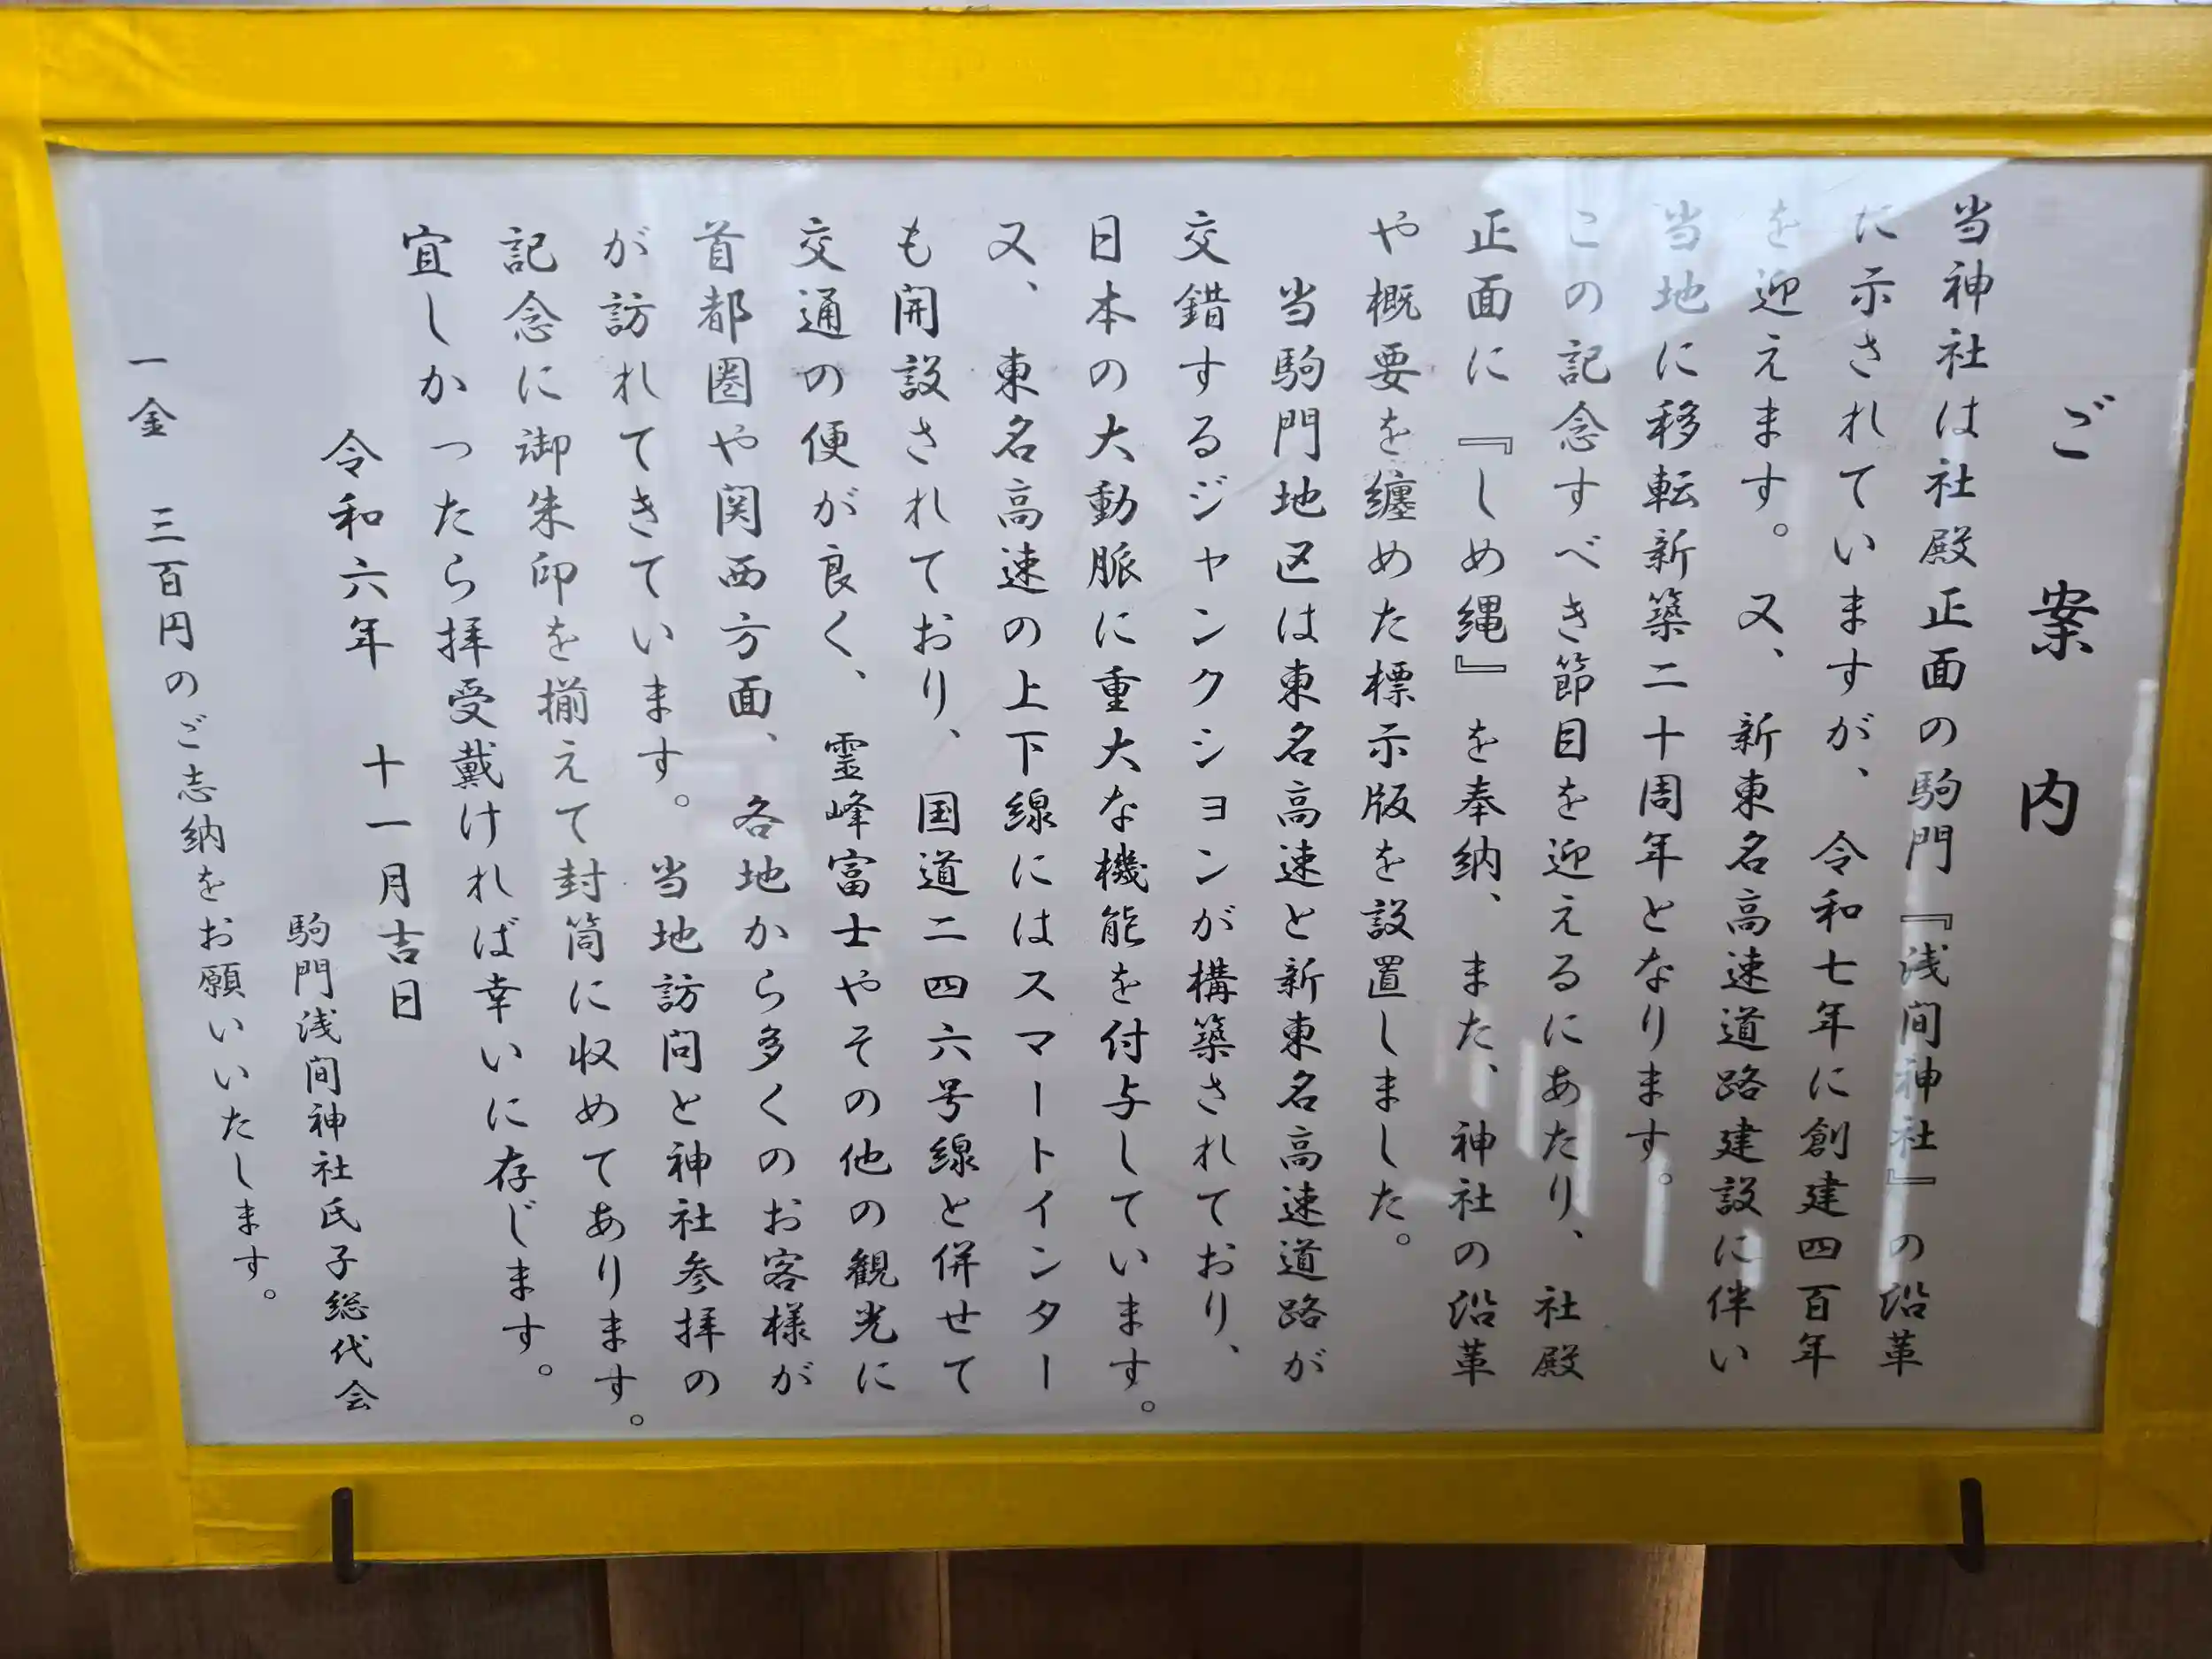 ご案内
当神社は社殿正面の駒門『浅間神社』の沿革
に示されていますが、令和七年に創建四百年
を迎えます。又、新東名高速道路建設に伴い
当地に移転新築二十周年となります。
この記念すべき節目を迎えるにあたり、社殿
正面に『しめ縄』を奉納、また、神社の沿革
や概要を纏めた標示版を設置しました。
当駒門地区は東名高速と新東名高速道路が
交錯するジャンクションが構築されており、
日本の大動脈に重大な機能を付与しています。
又、東名高速の上下線にはスマートインター
も開設されており、国道二四六号線と併せて
交通の便が良く、霊峰富士やその他の観光に
首都圏や関西方面、各地から多くのお客様が
が訪れてきています。当地訪問と神社参拝の
記念に御朱印を揃えて封筒に収めてあります。
宜しかったら拝受戴ければ幸いに存じます。
令和六年 十一月吉日
駒門浅間神社氏子総代会
一金 三百円のご志納をお願いいたします。